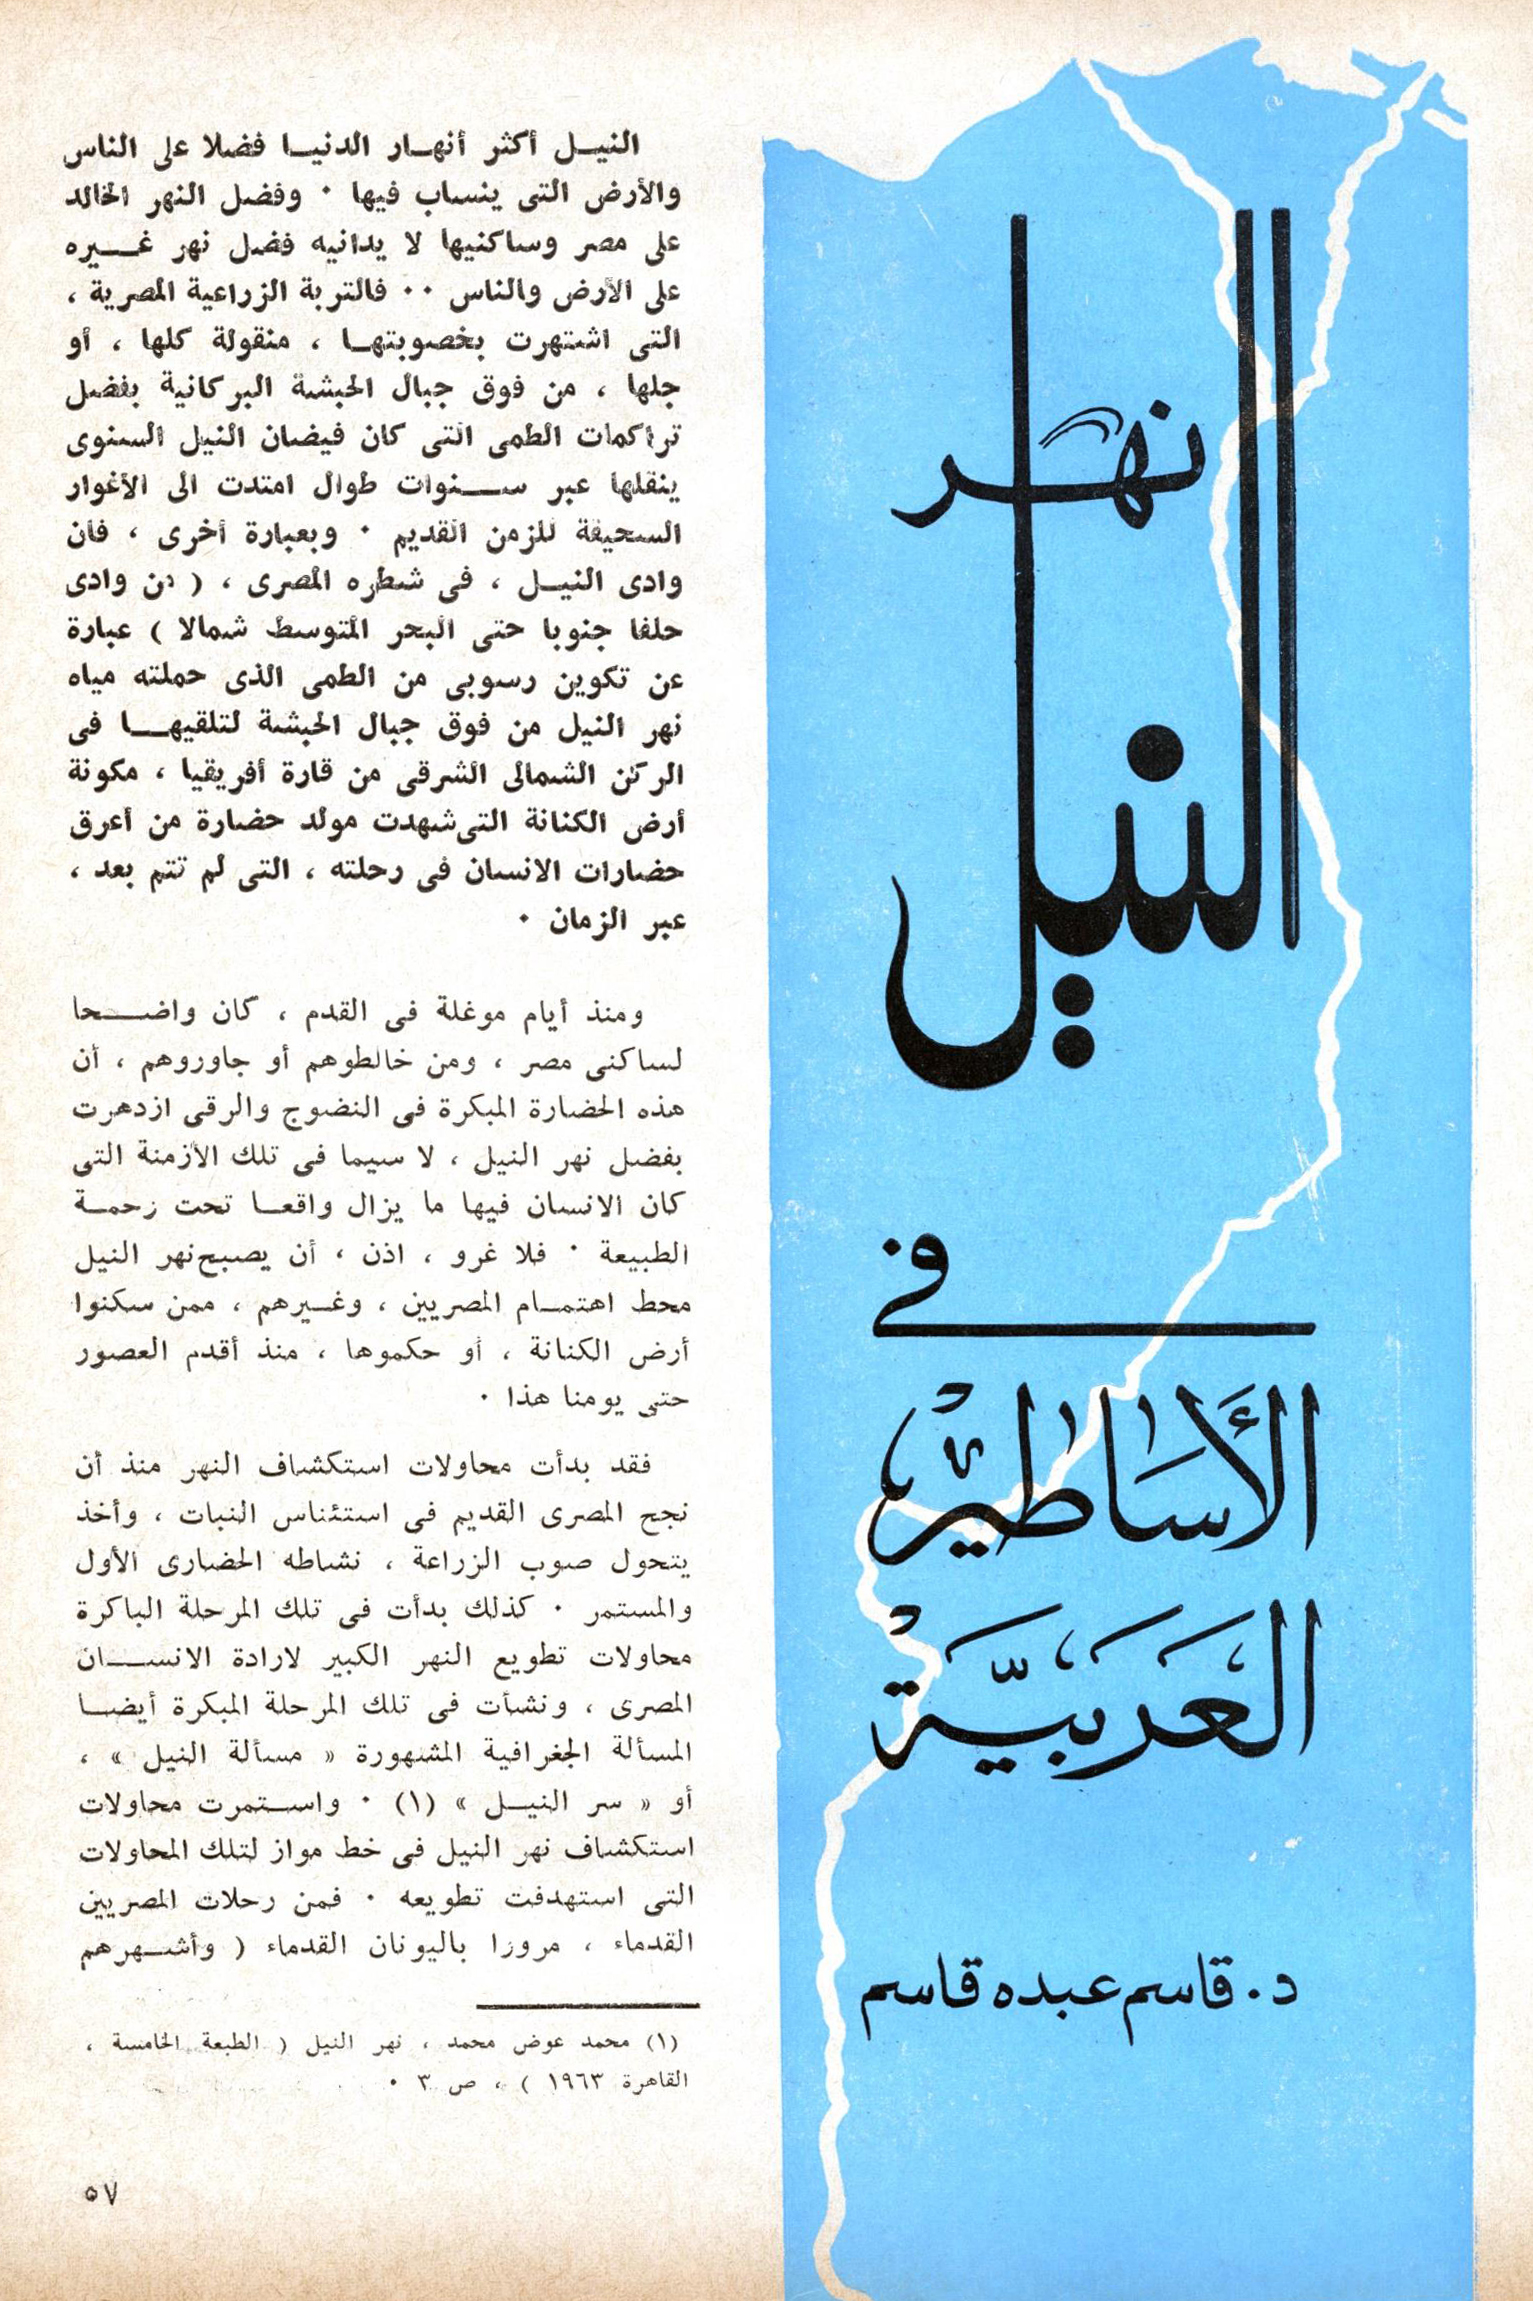 نهر
النيل
في
الأَسَاطيْر
العَرَبيَّة
د. قاسم عبده قاسم
النيل أكثر أنهار الدنيا فضلا على الناس
والأرض التى ينساب فيها ٠ وفضل النهر الخالد
على مصر وساكنيها لا يدانيه فضل نهر غيره
على الأرض والناس ٠٠ فالتربة الزراعية المصرية ،
التى اشتهرت بخصوبتها ، منقولة كلها ، أو
جلها ، من فوق جبال الحبشة البركانية بفضل
تراكمات الطمى التى كان فيضان النيل السنوى
ينقلها عبر سنوات طوال امتدت الى الأغوار
السحيقة للزمن القديم ٠ وبعبارة أخرى ، فان
وادى النيل ، فى شطره المصرى ، ( من وادى
حلفا جنوبا حتى البحر المتوسط شمالا ) عبارة
عن تكوين رسوبى من الطمى الذى حملته مياه
نهر النيل من فوق جبال الحبشة لتلقيها فى
الركن الشمالى الشرقى من قارة أفريقيا ، مكونة
أرض الكنانة التى شهدت مولد حضارة من أعرق
حضارات الانسان فى رحلته ، التى لم تتم بعد ،
عبر الزمان ٠
ومنذ أيام موغلة فى القدم ، كان واضحا
لساكنى مصر ، ومن خالطوهم أو جاوروهم ، أن
هذه الحضارة المبكرة فى النضوج والرقى ازدهرت
بفضل نهر النيل ، لا سيما فى تلك الأزمنة التى
كان الانسان فيها ما يزال واقعا تحت رحمة
الطبيعة ٠ فلا غرو ، اذن ، أن يصبح نهر النيل
محط اهتمام المصريين ، وغيرهم ، ممن سكنوا
أرض الكنانة ، أو حكموها ، منذ أقدم العصور
حتى يومنا هذا ٠
فقد بدأت محاولات استكشاف النهر منذ أن
نجح المصرى القديم فى استئناس النبات ، وأخذ
يتحول صوب الزراعة ، نشاطه الحضارى الأول
والمستمر ٠ كذلك بدأت فى تلك المرحلة الباكرة
محاولات تطويع النهر الكبير لارادة الانسان
المصرى ، ونشأت فى تلك المرحلة المبكرة أيضا
المسألة الجغرافية المشهورة « مسألة النيل » ،
أو « سر النيل » (١) ٠ واستمرت محاولات
استكشاف نهر النيل فى خط مواز لتلك المحاولات
التى استهدفت تطويعه ٠ فمن رحلات المصريين
القدماء ، مرورا باليونان القدماء ( وأشهرهم
(١) محمد عوض محمد ، نهر النيل ( الطبعة الخامسة ،
القاهرة ١٩٦٣ ) ، ص ٣ ٠
٥٧